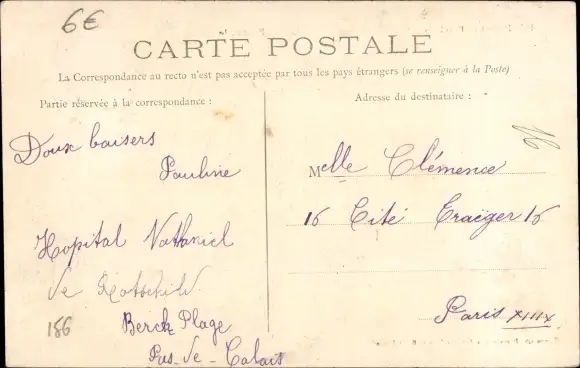 6€
CARTE POSTALE
La Correspondance au recto n'est pas acceptée par tous les pays étrangers (se renseigner à la Poste)
Partie réservée à la correspondance :
Adresse du destinataire :
Doux baisers
Pauline
Hopital Nathaniel
de Rotschild
Berck Plage
Pas-de-Calais
186
16
Melle Clémence
16 Cité 16
Paris